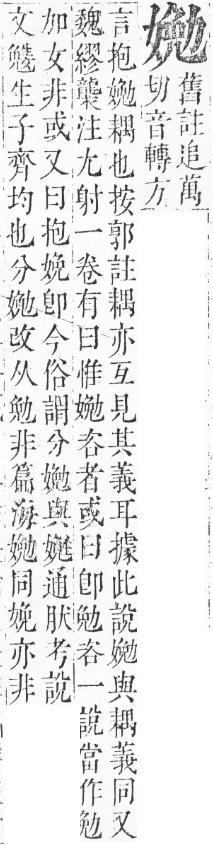 嬎
舊註追萬
切音轉方
言抱嬎耦也按郭註耦亦互見其義耳據此說嬎與耦義同又
魏繆襲注尤射一卷有曰惟嬎咨者或曰卽勉咨一說當作勉
加女非或又曰抱娩卽今俗謂分嬎與娩通肰考說
文嬎生子齊均也分嬎改从勉非篇海嬎同娩亦非